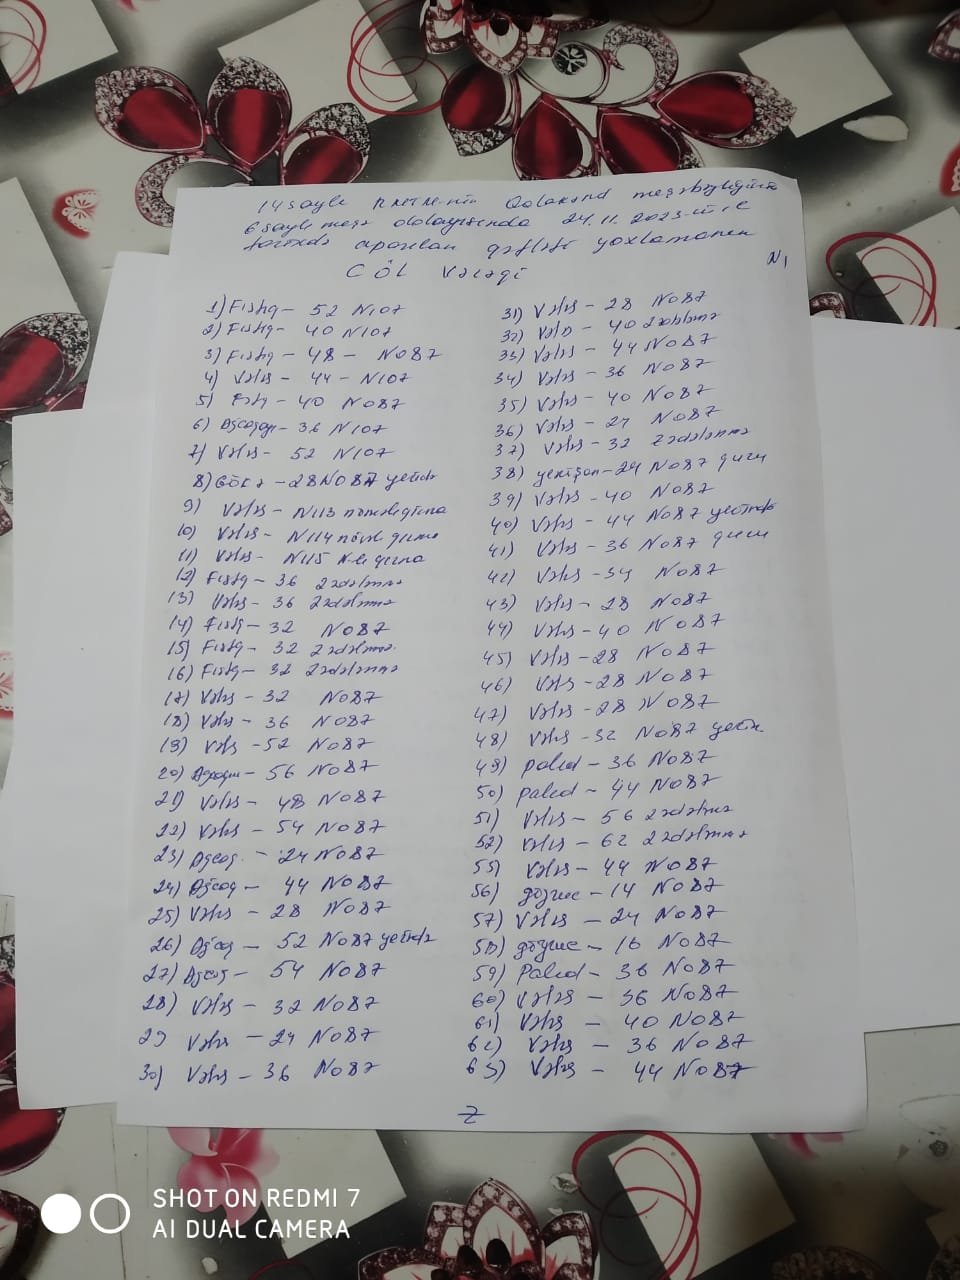 14 saylı
Qalakənd meşəbəyliyinin
6 saylı meşə dolayısında 24.11.2023-cü il
tarixdə aparılan qəfləti yoxlamanın
N1
ÇÖL Vərəqi
1) Fıstıq - 52 N107
2) Fıstıq - 40 N107
3) Fıstıq - 48 - N087
4) Vələs - 44 - N107
5) Fıstıq - 40 N087
6) Ağcaqay - 36 N107
7) Vələs - 52 N107
8) - 28 N087
9) Vələs - N113
10) Vələs - N114
11) Vələs - N115
12) Fıstıq - 36 Zədələnmə
13) Vələs - 36 Zədələnmə
14) Fıstıq - 32 N087
15) Fıstıq - 32 Zədələnmə
16) Fıstıq - 32 Zədələnmə
17) Vələs - 32 N087
18) Vələs - 36 N087
19) Vələs - 52 N087
20) - 56 N087
21) Vələs - 48 N087
22) Vələs - 54 N087
23) Ağcaq. - 24 N087
24) Ağcaq - 44 N087
25) Vələs - 28 N087
26) Ağcaq - 52 N087
27) Ağcaq - 54 N087
28) Vələs - 32 N087
29) Vələs - 24 N087
30) Vələs - 36 N087
31) Vələs - 28 N087
32) Vələs - 40 Zədələnmə
33) Vələs - 44 N087
34) Vələs - 36 N087
35) Vələs - 40 N087
36) Vələs - 24 N087
37) Vələs - 32 Zədələnmə
38) yemişan - 24 N087 quru
39) Vələs - 40 N087
40) Vələs - 44 N087
41) Vələs - 36 N087 quru
42) Vələs - 34 N087
43) Vələs - 28 N087
44) Vələs - 40 N087
45) Vələs - 28 N087
46) Vələs - 28 N087
47) Vələs - 28 N087
48) Vələs - 32 N087
49) Palıd - 36 N087
50) Palıd - 44 N087
51) Vələs - 56 Zədələnmə
52) Vələs - 62 Zədələnmə
55) Vələs - 44 N087
56) - 14 N087
57) Vələs - 24 N087
58) - 16 N087
59) Palıd - 36 N087
60) Vələs - 36 N087
61) Vələs - 40 N087
62) Vələs - 36 N087
63) Vələs - 44 N087
SHOT ON REDMI 7
AI DUAL CAMERA